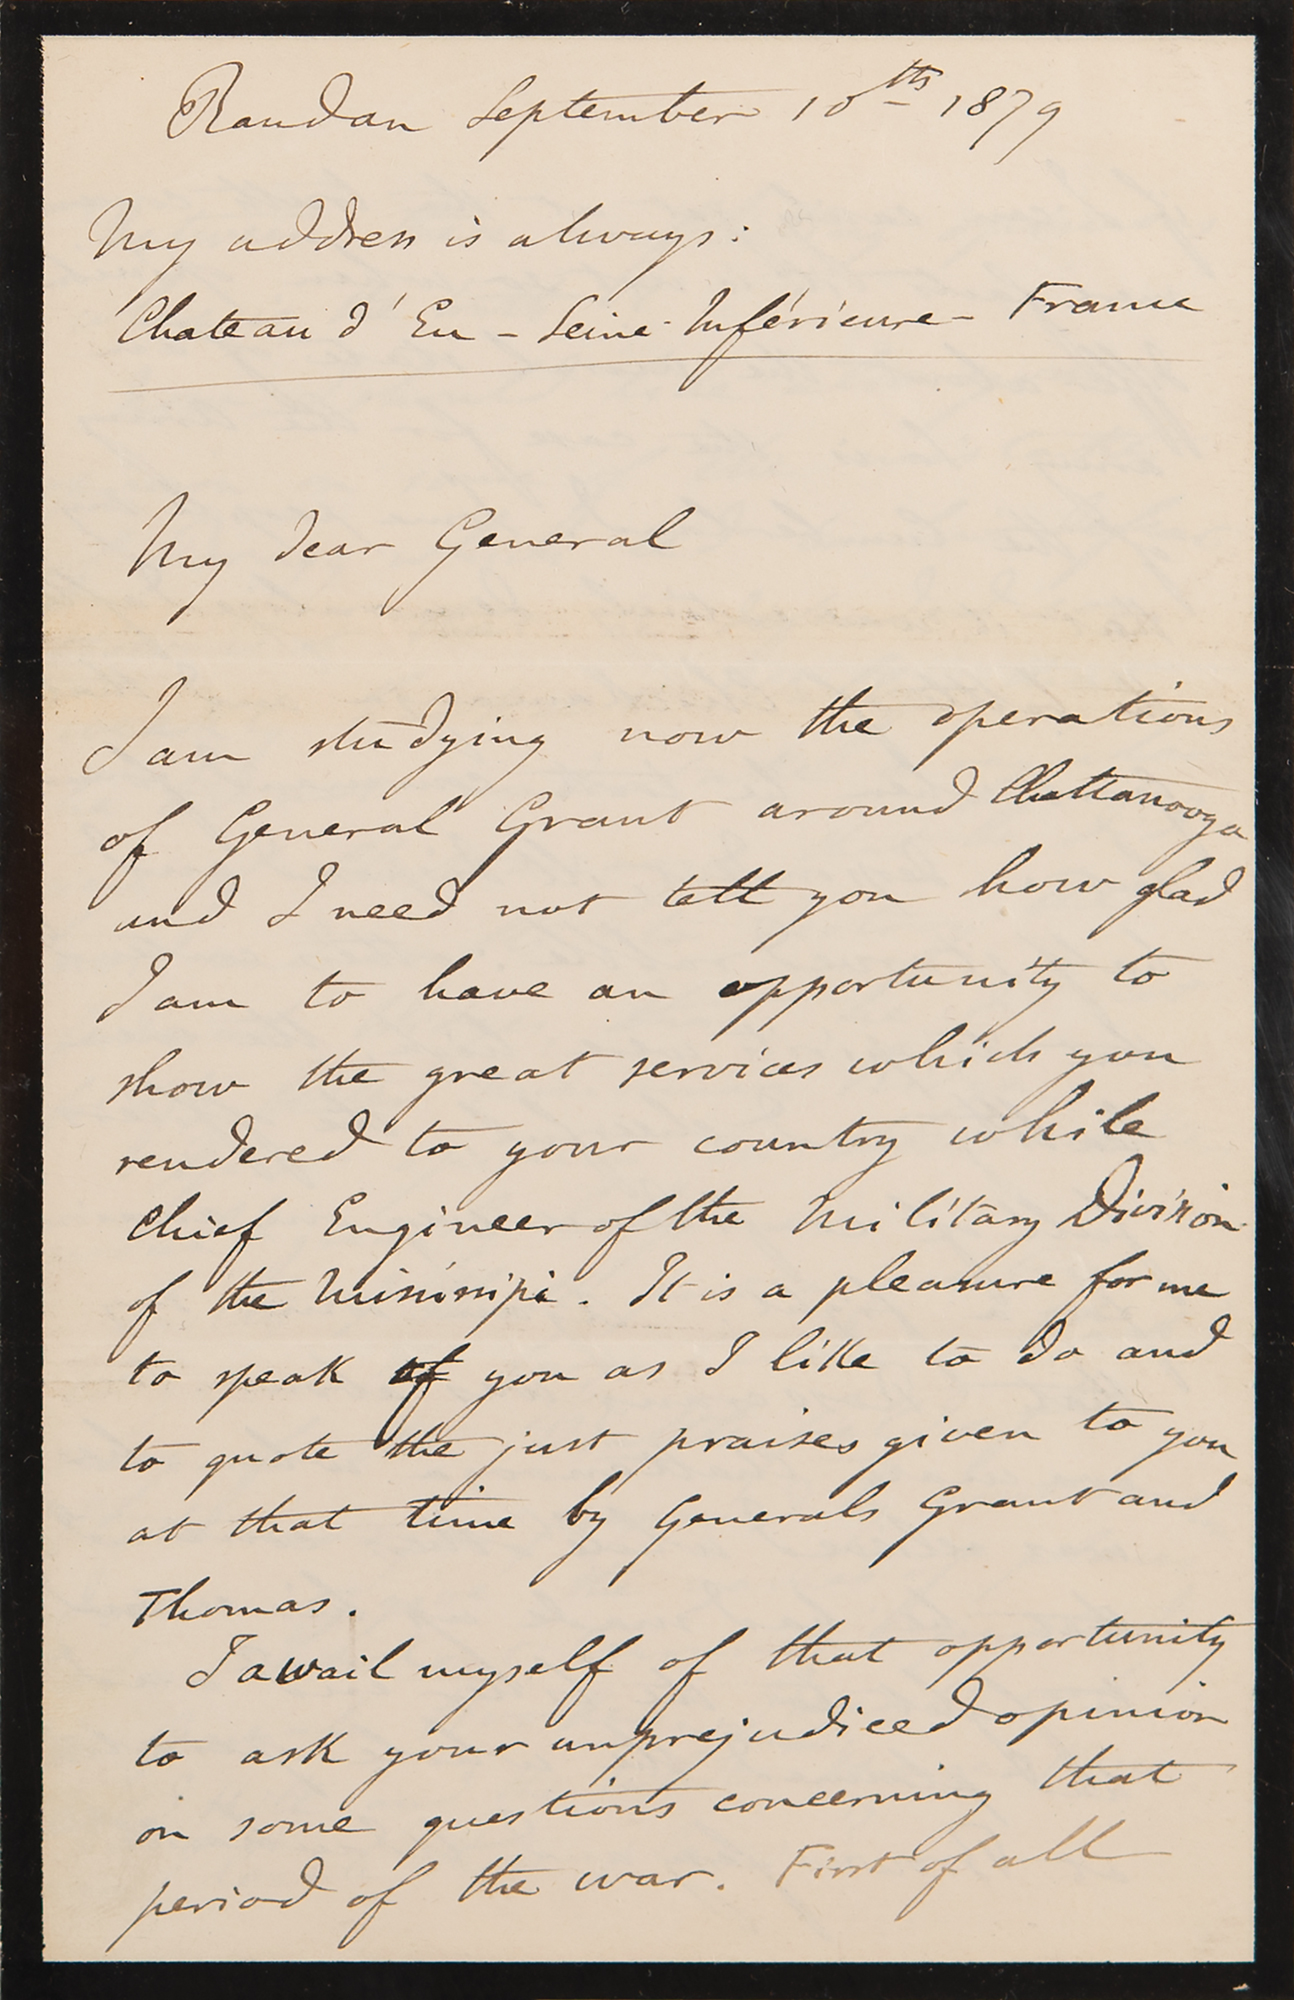 Randan September 10th 1879
My address is always:
Chateau d'Eu - Seine-Inférieure - France
My dear General
I am studying now the operations
of General Grant around Chattanooga
and I need not tell you how glad
I am to have an opportunity to
show the great services which you
rendered to your country while
Chief Engineer of the Military Division
of the Mississipi. It is a pleasure for me
to speak of you as I like to do and
to quote the just praises given to you
at that time by Generals Grant and
Thomas.
I avail myself of that opportunity
to ask your unprejudiced opinion
on some questions concerning that
period of the war. First of all